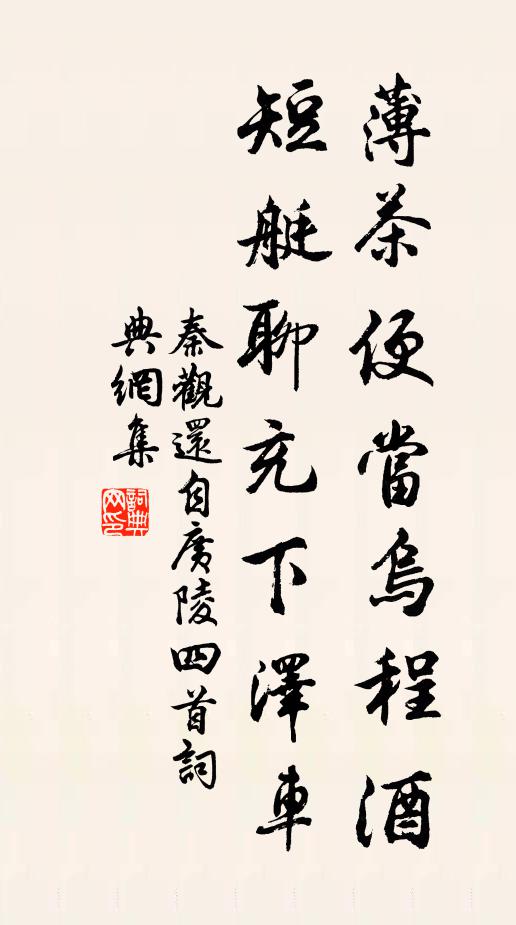 薄茶便當烏程酒
短艇聊充下澤車
秦觀還自廣陵四首詞
典網集
詞典网印